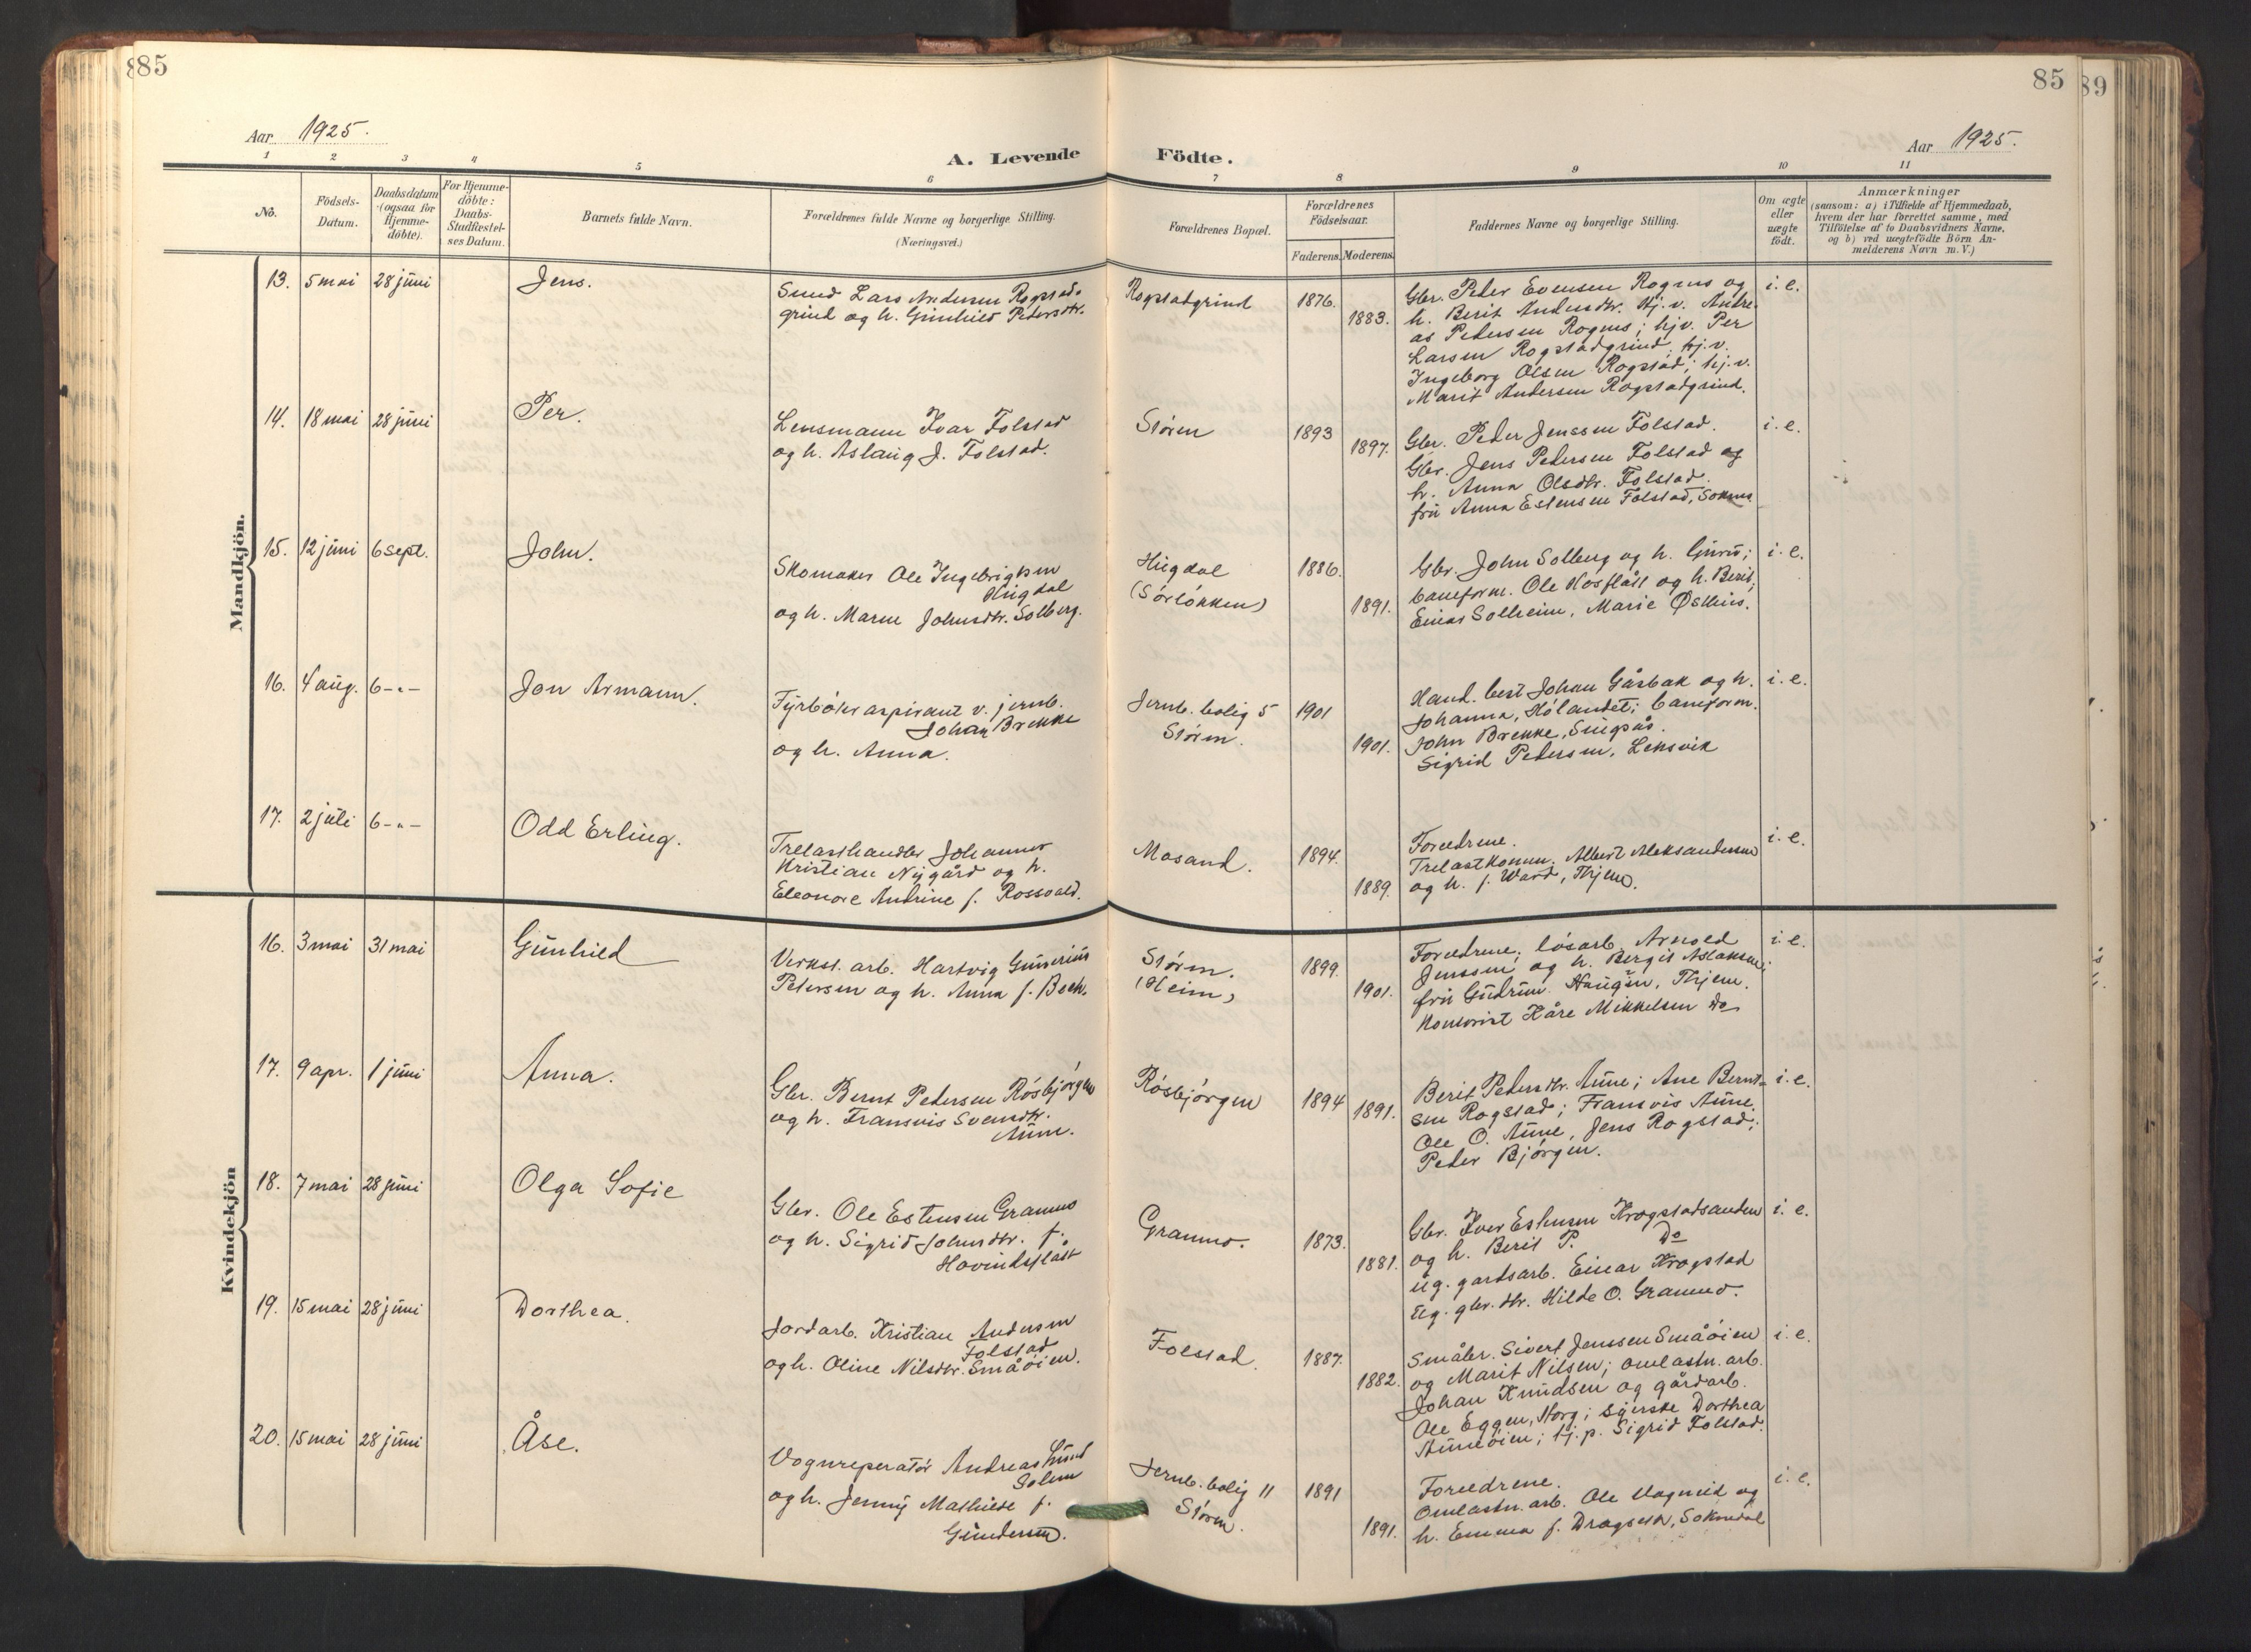 85
85
89
Aar 1925.
A. Levende Födte.
Aar 1925.
1 2 3 4 5 6 7 8 9 10 11
No.
Födsels-
Datum.
Daabsdatum
(ogsaa for
Hjemme-
döbte).
For Hjemme-
döbte:
Daabs-
Stadfæstel-
ses Datum.
Barnets fulde Navn.
Forældrenes fulde Navne og borgerlige Stilling.
(Næringsvei.)
Forældrenes Bopæl.
Forældrenes
Födselsaar.
Faderens. Moderens.
Faddernes Navne og borgerlige Stilling.
Om ægte
eller
uægte
födt.
Anmærkninger
(saasom: a) i Tilfælde af Hjemmedaab,
hvem der har forrettet samme, med
Tilföielse af to Daabsvidners Navne,
og b) ved uægtefödte Börn An-
melderens Navn m.V.)
Mandkjön.
13. 5 mai 28 juni Jens.
Smed Lars Andersen Rogstad-
grind og h. Gunhild Pedersdtr.
Rogstadgrind 1876. 1883.
Gbr. Peder Evensen Rogns og
h. Berit Andersdtr. Hj.v. Andre-
as Pedersen Rogns; hjv. Per
Larsen Rogstadgrind, hj.v.
Ingeborg Olsen Rogstad; hj.v.
Marit Andersen Rogstadgrind.
i. e.
14. 18 mai 28 juni Per.
Lensmann Ivar Folstad
og h. Aslaug J. Folstad.
Støren 1893 1897.
Gbr. Peder Jenssen Folstad.
Gbr. Jens Pedersen Folstad og
h. Anna Olsdtr. Folstad.
fru Anna Estensen Folstad, Sokned
i. e.
15. 12 juni 6 sept. John.
Skomaker Ole Ingebrigtsen
Hugdal
og h. Maren Johnsdtr. Solberg.
Hugdal
(Sørløkken)
1886. 1891.
Gbr. John Solberg og h. Guru;
baneform. Ole Hosflått og h. Berit;
Einar Solheim, Marie Østhus.
i. e.
16. 4 aug. 6 -"- Jon Armann.
Fyrbøter aspirant v. jernb.
Johan Brekke
og h. Anna.
Jernb. bolig 5
Støren.
1901 1901.
Hand. best Johan Gåsbak og h.
Johanna, Hølandet; baneform.
John Brekke, Singsås.
Sigrid Pedersen, Leksvik
i. e.
17. 2 juli 6 -"- Odd Erling.
Trelasthandler Johannes
Kristian Nygård og h.
Eleonore Andrine f. Rossvald.
Mosand. 1894. 1889.
Foreldrene.
Trelasthandl. Albert Aleksandersen
og h. f. Ward, Thjem.
i. e.
Kvindekjön
16. 3 mai 31 mai Gunhild
Verkst. arb. Hartvig Gunerius
Petersen og h. Anna f. Bech.
Støren.
(Heim)
1899. 1901.
Foreldrene; løsarb. Arnold
Jenssen og h. Bergit Aslaksen;
fru Gudrun Haugan, Thjem.
Kontorist Kåre Mikkelsen Do
i. e.
17. 9 apr. 1 juni Anna.
Gbr. Bernt Pedersen Røsbjørgen
og h. Fransvis Svendsdtr.
Aune.
Røsbjørgen 1894 1891.
Berit Pedersdtr. Aune; Ane Bernt-
sen Rogstad; Fransvis Aune.
Ole O. Aune, Jens Rogstad;
Peder Bjørgen.
i. e.
18. 7 mai 28 juni Olga Sofie
Gbr. Ole Estensen Gramno
og h. Sigrid Johnsdtr. f.
Hovindsflått
Gramno. 1873. 1881.
Gbr. Iver Estensen Krogstadsanden
og h. Berit P. Do
ug. gardsarb. Einar Krogstad
ug. gbr. dtr. Hilde O. Gramno.
i. e.
19. 15 mai 28 juni Dorthea.
Jordarb. Kristian Andersen
Folstad
og h. Oline Nilsdtr. Småøien.
Folstad. 1887. 1882.
Småbr. Sivert Jenssen Småøien
og Marit Nilsen; omlastn. arb.
Johan Knudsen og gårdarb.
Ole Eggen, Horg; syerske Dorthea
Auneøien; tj. p. Sigrid Folstad.
i. e.
20. 15 mai 28 juni Åse.
Vognreperatør Andreas Lund
Solem
og h. Jenny Mathilde f.
Gundersen.
Jernb. bolig 11
Støren.
1891 1891.
Foreldrene.
Omlastn. arb. Ole Vagnild og
h. Emma f. Dragseth, Soknedal
i. e.